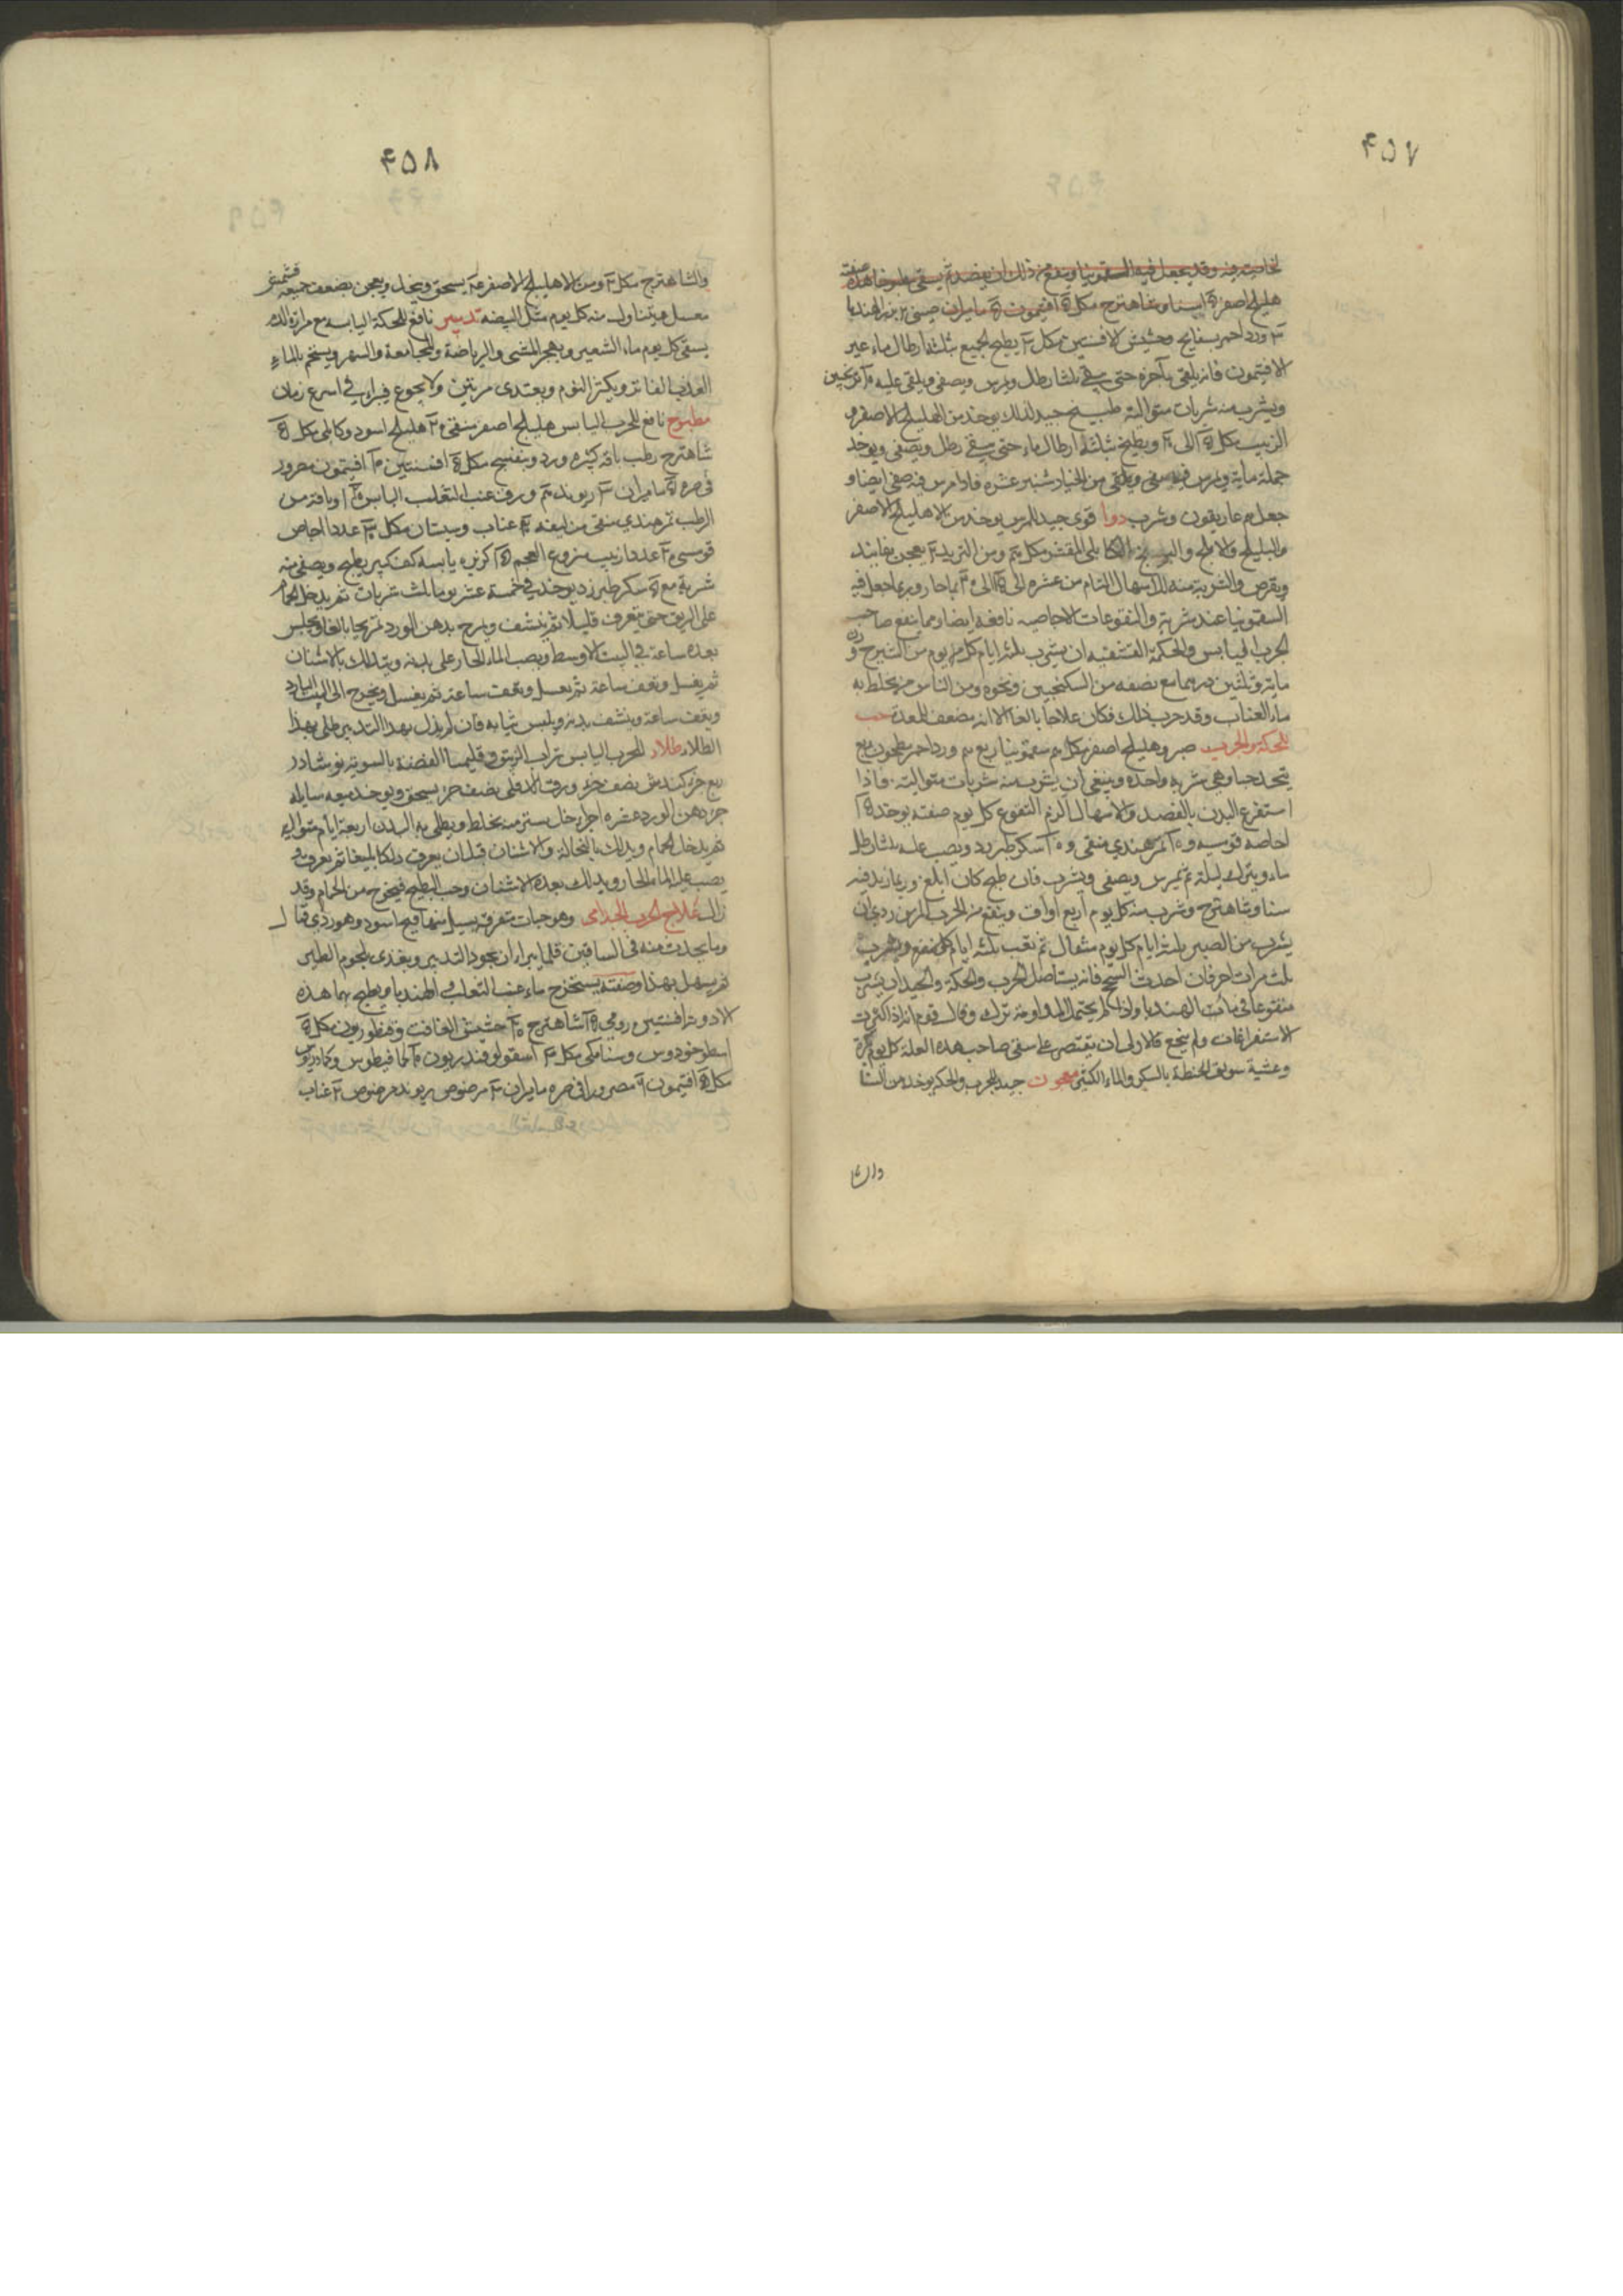 ۴۵۷
لخاصية فيه وقد يجعل فيه السقمونيا وينفع من ذلك ان يفصد ثم يسقى مطبوخا هذه صفته
هليلج اصفر سنا وشاهترج مكل افتيمون ماميران صيني بزر الهندبا
ورد احمر بسفايج وحشيش الافسنتين مكل يطبخ الجميع بثلثة ارطال ماء غير
الافتيمون فانه يلقى بآخره حتى يبقى ثلثا رطل ويمرس ويصفى ويلقى عليه ترنجبين
ويشرب منه شربات متوالية طبيخ جيد لذلك يوخذ من الهليلج الاصفر و
الزبيب مكل الى ويطبخ بثلثة ارطال ماء حتى يبقى رطل ويصفى ويوخذ
جملة مائه ويمرس فيه ويلقى من الخيار شنبر عشرة فاذا مرس فيه صفى ايضا و
جعل غاريقون وشرب دوا قوى جيد للمرس يوخذ من الاهليلج الاصفر
والبليلج والاملج والكابلى المقشر مكل ومن التربد يعجن بفانيذ
ويقرص والشربة منه للاسهال التام من عشره الى بماء حار وربما جعل فيه
السقمونيا عند شربه والنقوعات الاجاصيه نافعة ايضا ومما ينفع صاحب
الجرب اليابس والحكة القشفيه ان يشرب ثلثة ايام كل يوم من الشيرج وزن
مايه وثلثين درهما مع نصفه من السكنجبين ونحوه ومن الناس من يخلط به
ماء العناب وقد جرب ذلك فكان علاجا بالغا الا انه مضعف للمعدة حب
للحكة والجرب صبر وهليلج اصفر مكل سقمونيا ربع ورد احمر مطحون ربع
يتخذ حبا وهى شربه واحده وينبغى ان يشرب منه شربات متوالية فاذا
استفرغ البدن بالفصد والاسهال الزم النقوع كل يوم صفته يوخذ
اجاصه قوسيه و تمر هندي منقى و سكر طبرزد ويصب عليه ثلثا رطل
ماء ويترك ليلة ثم يمرس ويصفى ويشرب فان طبخ كان ابلغ وربما زيد فيه
سنا وشاهترج وشرب منه كل يوم اربع اواق وينفع من الجرب المزمن ردى ان
يشرب من الصبر ثلثة ايام كل يوم مثقال ثم يغب ثلثه ايام ويشرب
ثلث مرات اخر فان احدث السحج فانه يستاصل الجرب والحكة والجيد ان يشرب
منقوعا فى ماء الهندبا واذا لم يحتمل المداومة ترك وقال قوم انه اذا اكثرت
الاستفراغات ولم ينجع فالاولى ان يقتصر على سقى صاحب هذه العلة كل يوم بكرة
وعشية سويق الحنطة بالسكر والماء الكثير معجون جيد للجرب والحكة يوخذ من السنا
والشا
۴۵۸
والشاهترج مكل ومن الاهليلج الاصفر يسحق وينخل ويعجن بضعف جميعه قشمش
معسل ويتناول منه كل يوم مثل البيضه تدبير نافع للحكة اليابسه مع مرارة الدم
يسقى كل يوم ماء الشعير ويهجر المشى والرياضة والمجامعة والسهر ويستحم بالماء
العذب الفاتر ويكثر النوم ويغتذى مرتين ولا يجوع فيبراء في اسرع زمان
مطبوخ نافع للجرب اليابس هليلج اصفر منقى هليلج اسود وكابلى مكل
شاهترج رطب باقه كبيره ورد وبنفسج مكل افسنتين افتيمون مصرور
في خرقه ماميران ريوند ورق عنب الثعلب اليابس او باقه من
الرطب تمر هندي منقى من ليفه عناب وسبستان مكل عددا اجاص
قوسى عددا زبيب منزوع العجم كزبره يابسه كف كبير يطبخ ويصفى منه
شربة مع سكر طبرزد يوخذ في خمسة عشر يوما ثلث شربات ثم يدخل الحمام
على الريق حتى يتعرق قليلا ثم ينشف ويمرخ بدهن الورد تمريخا بالغا ويجلس
بعده ساعة في البيت الاوسط ويصب الماء الحار على بدنه ويتدلك بالاشنان
ثم يغسل ويقف ساعة ثم يغسل ويقف ساعة ثم يغسل ويخرج الى البيت البارد
ويقف ساعة وينشف بدنه ويلبس ثيابه فان لم يزل بهذا التدبير طلى بهذا
الطلاء طلاء للجرب اليابس تراب الزيبق وقليميا الفضة بالسويه نوشادر
ربع جزء كندش نصف جزء ورق الدفلى نصف جزء يسحق ويوخذ ميعه سايله
جزء دهن الورد عشره اجزاء خل يخلط ويطلى به البدن اربعة ايام متواليه
ثم يدخل الحمام ويدلك بالنخالة والاشنان قبل ان يعرق دلكا بليغا ثم يعرق و
يصب عليه الماء الحار ويدلك بعده بالاشنان وحب البطيخ فيخرج من الحمام وقد
زال علاج الجرب الجذامى وهو حبات متفرقه يسيل منها قيح اسود وهو ردى قتال
وما يحدث منه فى الساقين قلما يبراء ان يجود التدبير ويغذى بلحوم الطير
ثم يسهل بهذا وصفته يستخرج ماء عنب الثعلب و الهندبا ويطبخ بهما هذه
الادوية افسنتين رومي شاهترج حشيش الغافت وقنطوريون مكل
اسطوخودوس وسنا مكى مكل اسقولوقندريون كمافيطوس وكمادريوس
مكل افتيمون مصرورا فى خرقه ماميران مرضوض ريوند مرضوض عناب